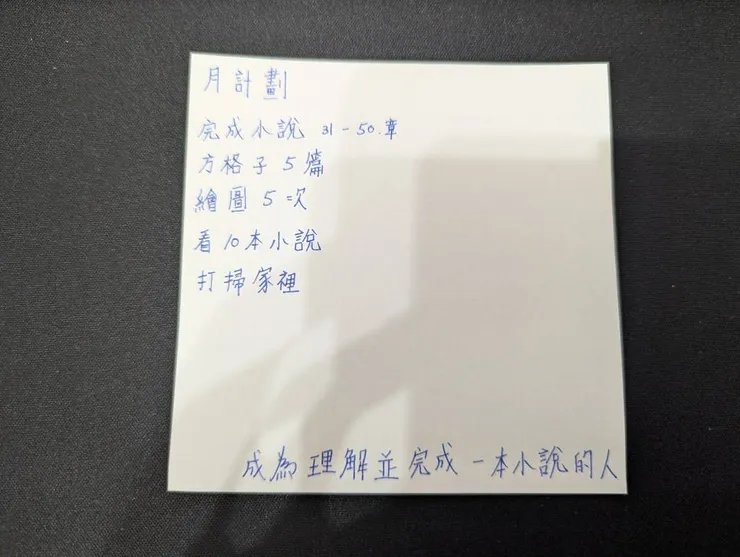 月計劃
完成小說 31-50.章
方格子 5 篇
繪圖 5 次
看 10 本小說
打掃家裡
成為理解並完成一本小說的人